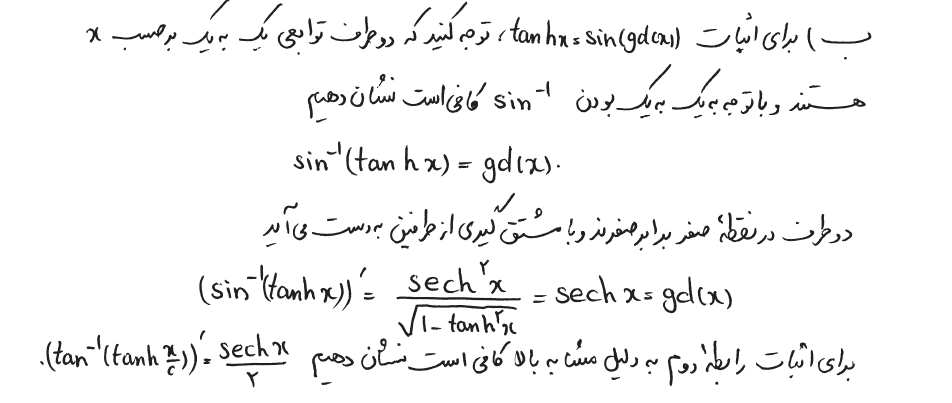 ب) برای اثبات tanhx = sin(gd(x))، توجه کنید که دو طرف توابعی یک به یک بر حسب x
هستند و با توجه به یک به یک بودن sin⁻¹ کافی است نشان دهیم
sin⁻¹(tanh x) = gd(x).
دو طرف در نقطهٔ صفر برابر صفرند و با مشتق گیری از طرفین به دست می آید
(sin⁻¹(tanh x))′ = sech²x / √(1 - tanh²x) = sech x = gd(x)
برای اثبات رابطهٔ دوم به دلیل مشابه بالا کافی است نشان دهیم (tan⁻¹(tanh x/۲))′ = sech x / ۲.